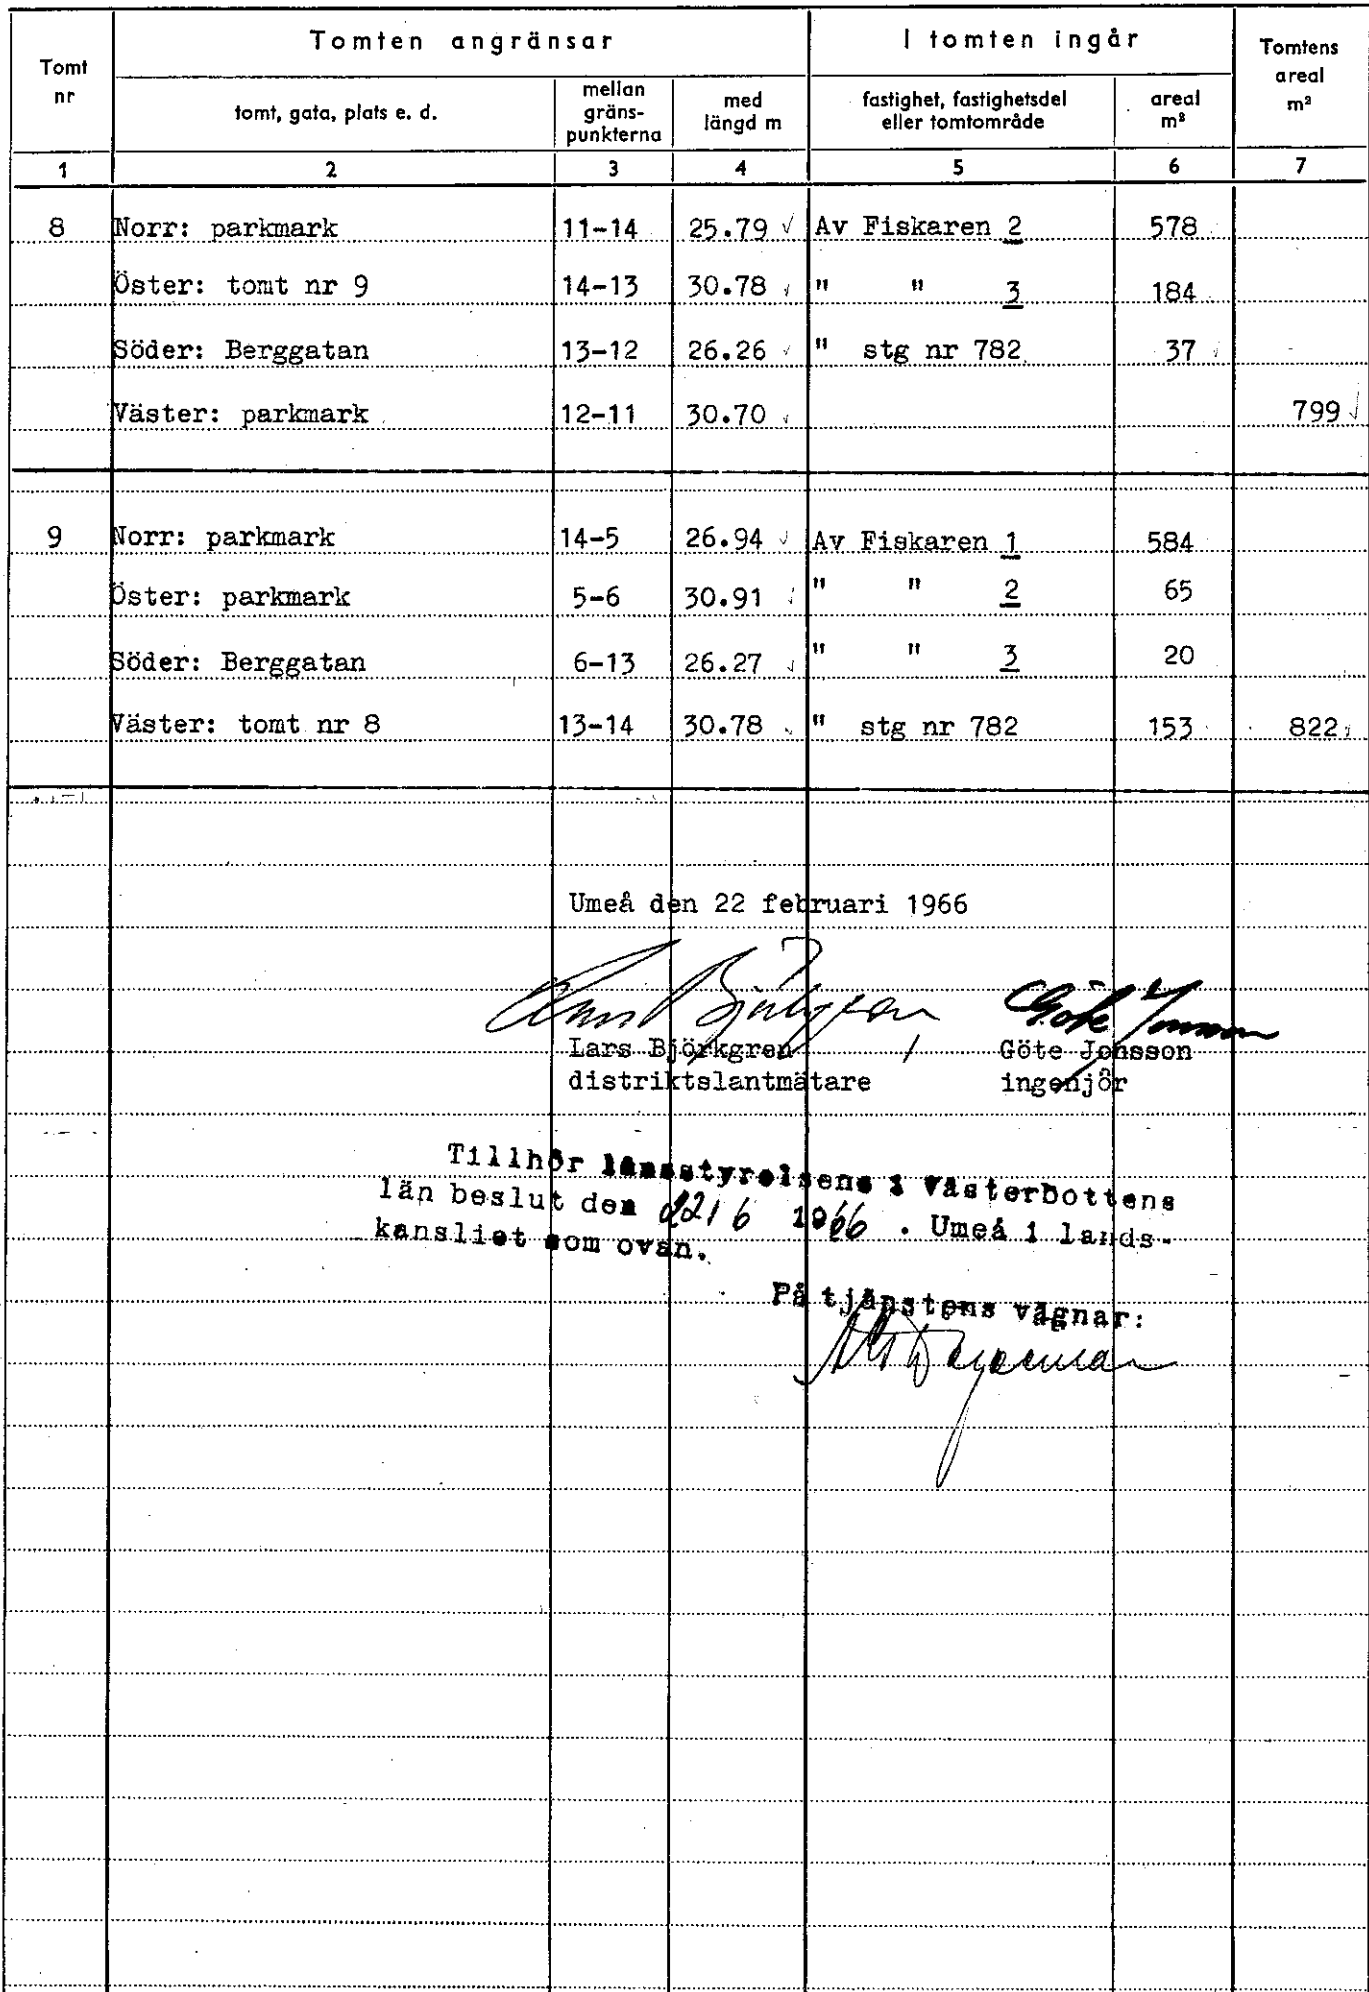 Tomt nr
Tomten angränsar
I tomten ingår
Tomtens areal m²
tomt, gata, plats e. d.
mellan gräns-punkterna
med längd m
fastighet, fastighetsdel eller tomtområde
areal m²
1 2 3 4 5 6 7
8 Norr: parkmark 11-14 25.79 √ Av Fiskaren 2 578
Öster: tomt nr 9 14-13 30.78 " " 3 184
Söder: Berggatan 13-12 26.26 " stg nr 782 37
Väster: parkmark 12-11 30.70 799 √
9 Norr: parkmark 14-5 26.94 √ Av Fiskaren 1 584
Öster: parkmark 5-6 30.91 " " 2 65
Söder: Berggatan 6-13 26.27 √ " " 3 20
Väster: tomt nr 8 13-14 30.78 " stg nr 782 153 822
Umeå den 22 februari 1966
Göte Jonsson
Lars Björkgren Göte Jonsson
distriktslantmätare ingenjör
Tillhör länsstyrelsens i Västerbottens
län beslut den 22/6 1966 . Umeå i lands-
kansliet som ovan.
På tjänstens vägnar: